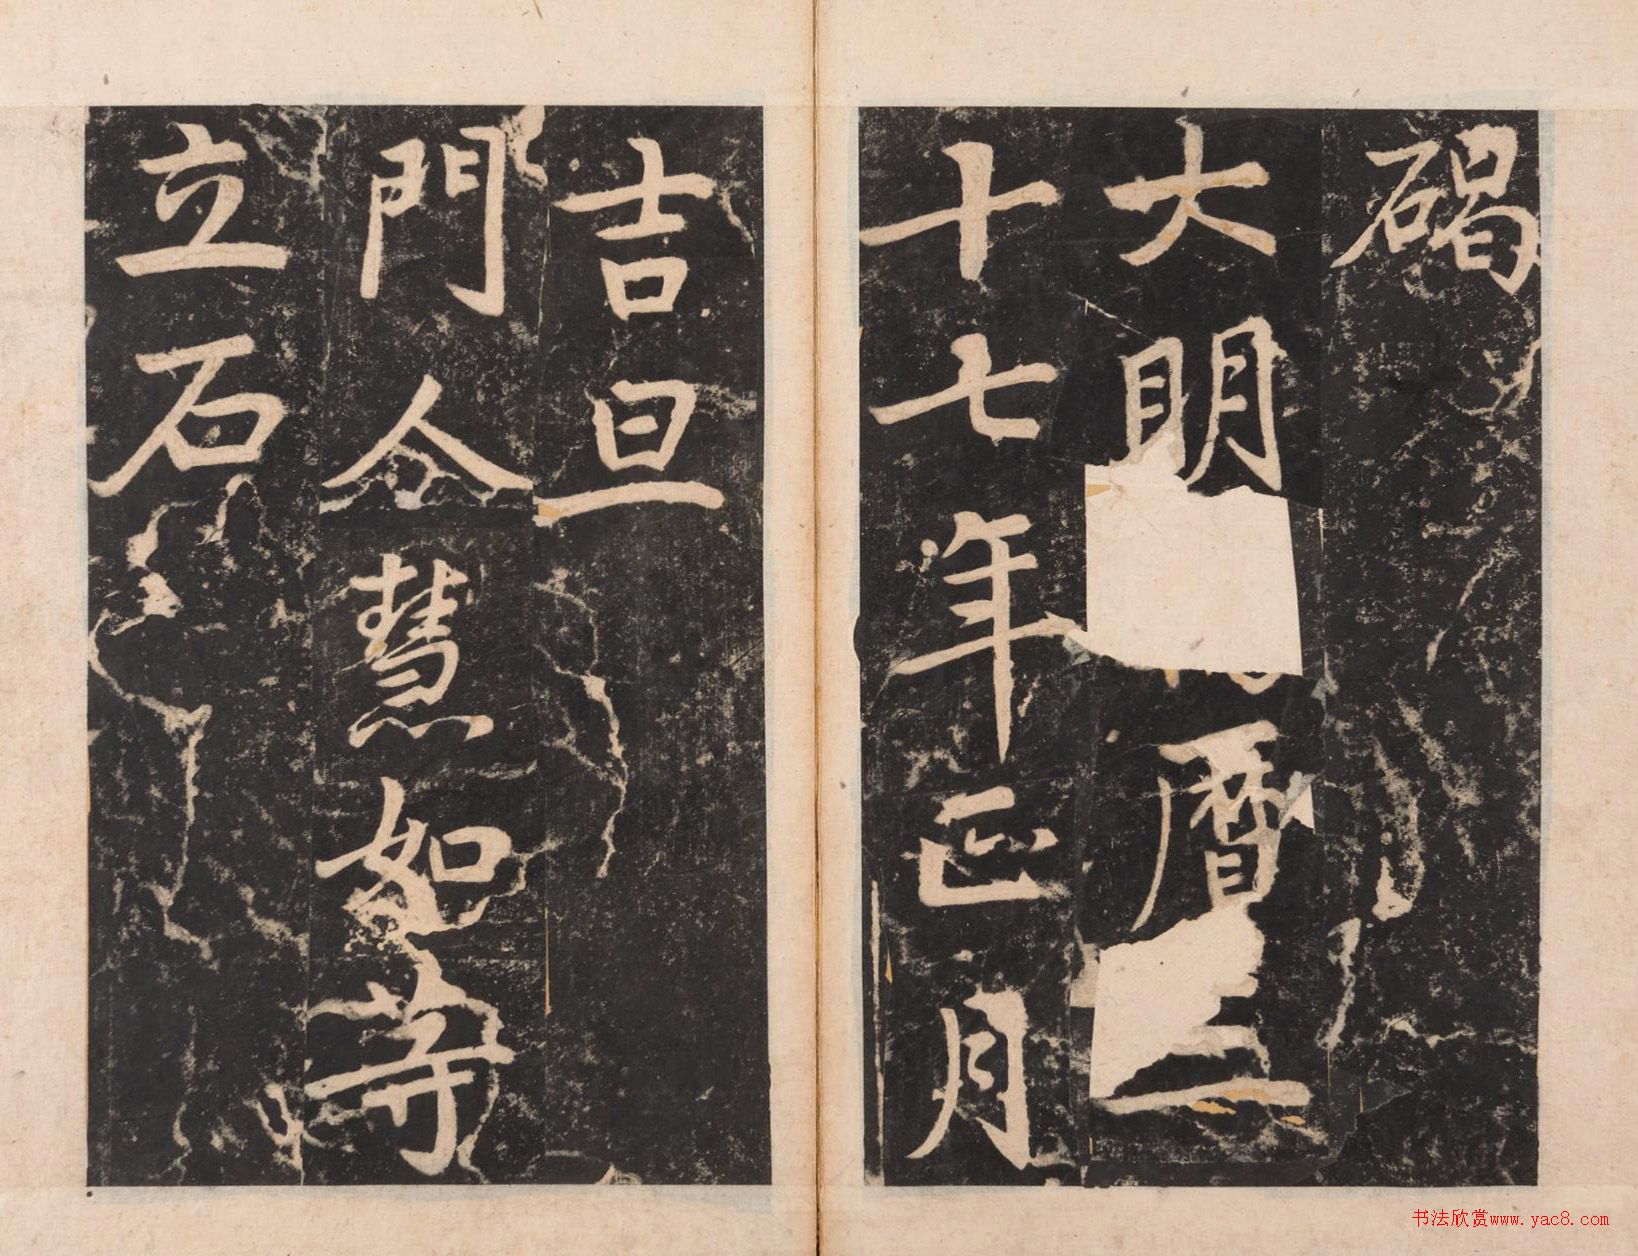 碣
大明曆三
十七年正月
吉旦
門人慧如等
立石
书法欣赏www.yac8.com